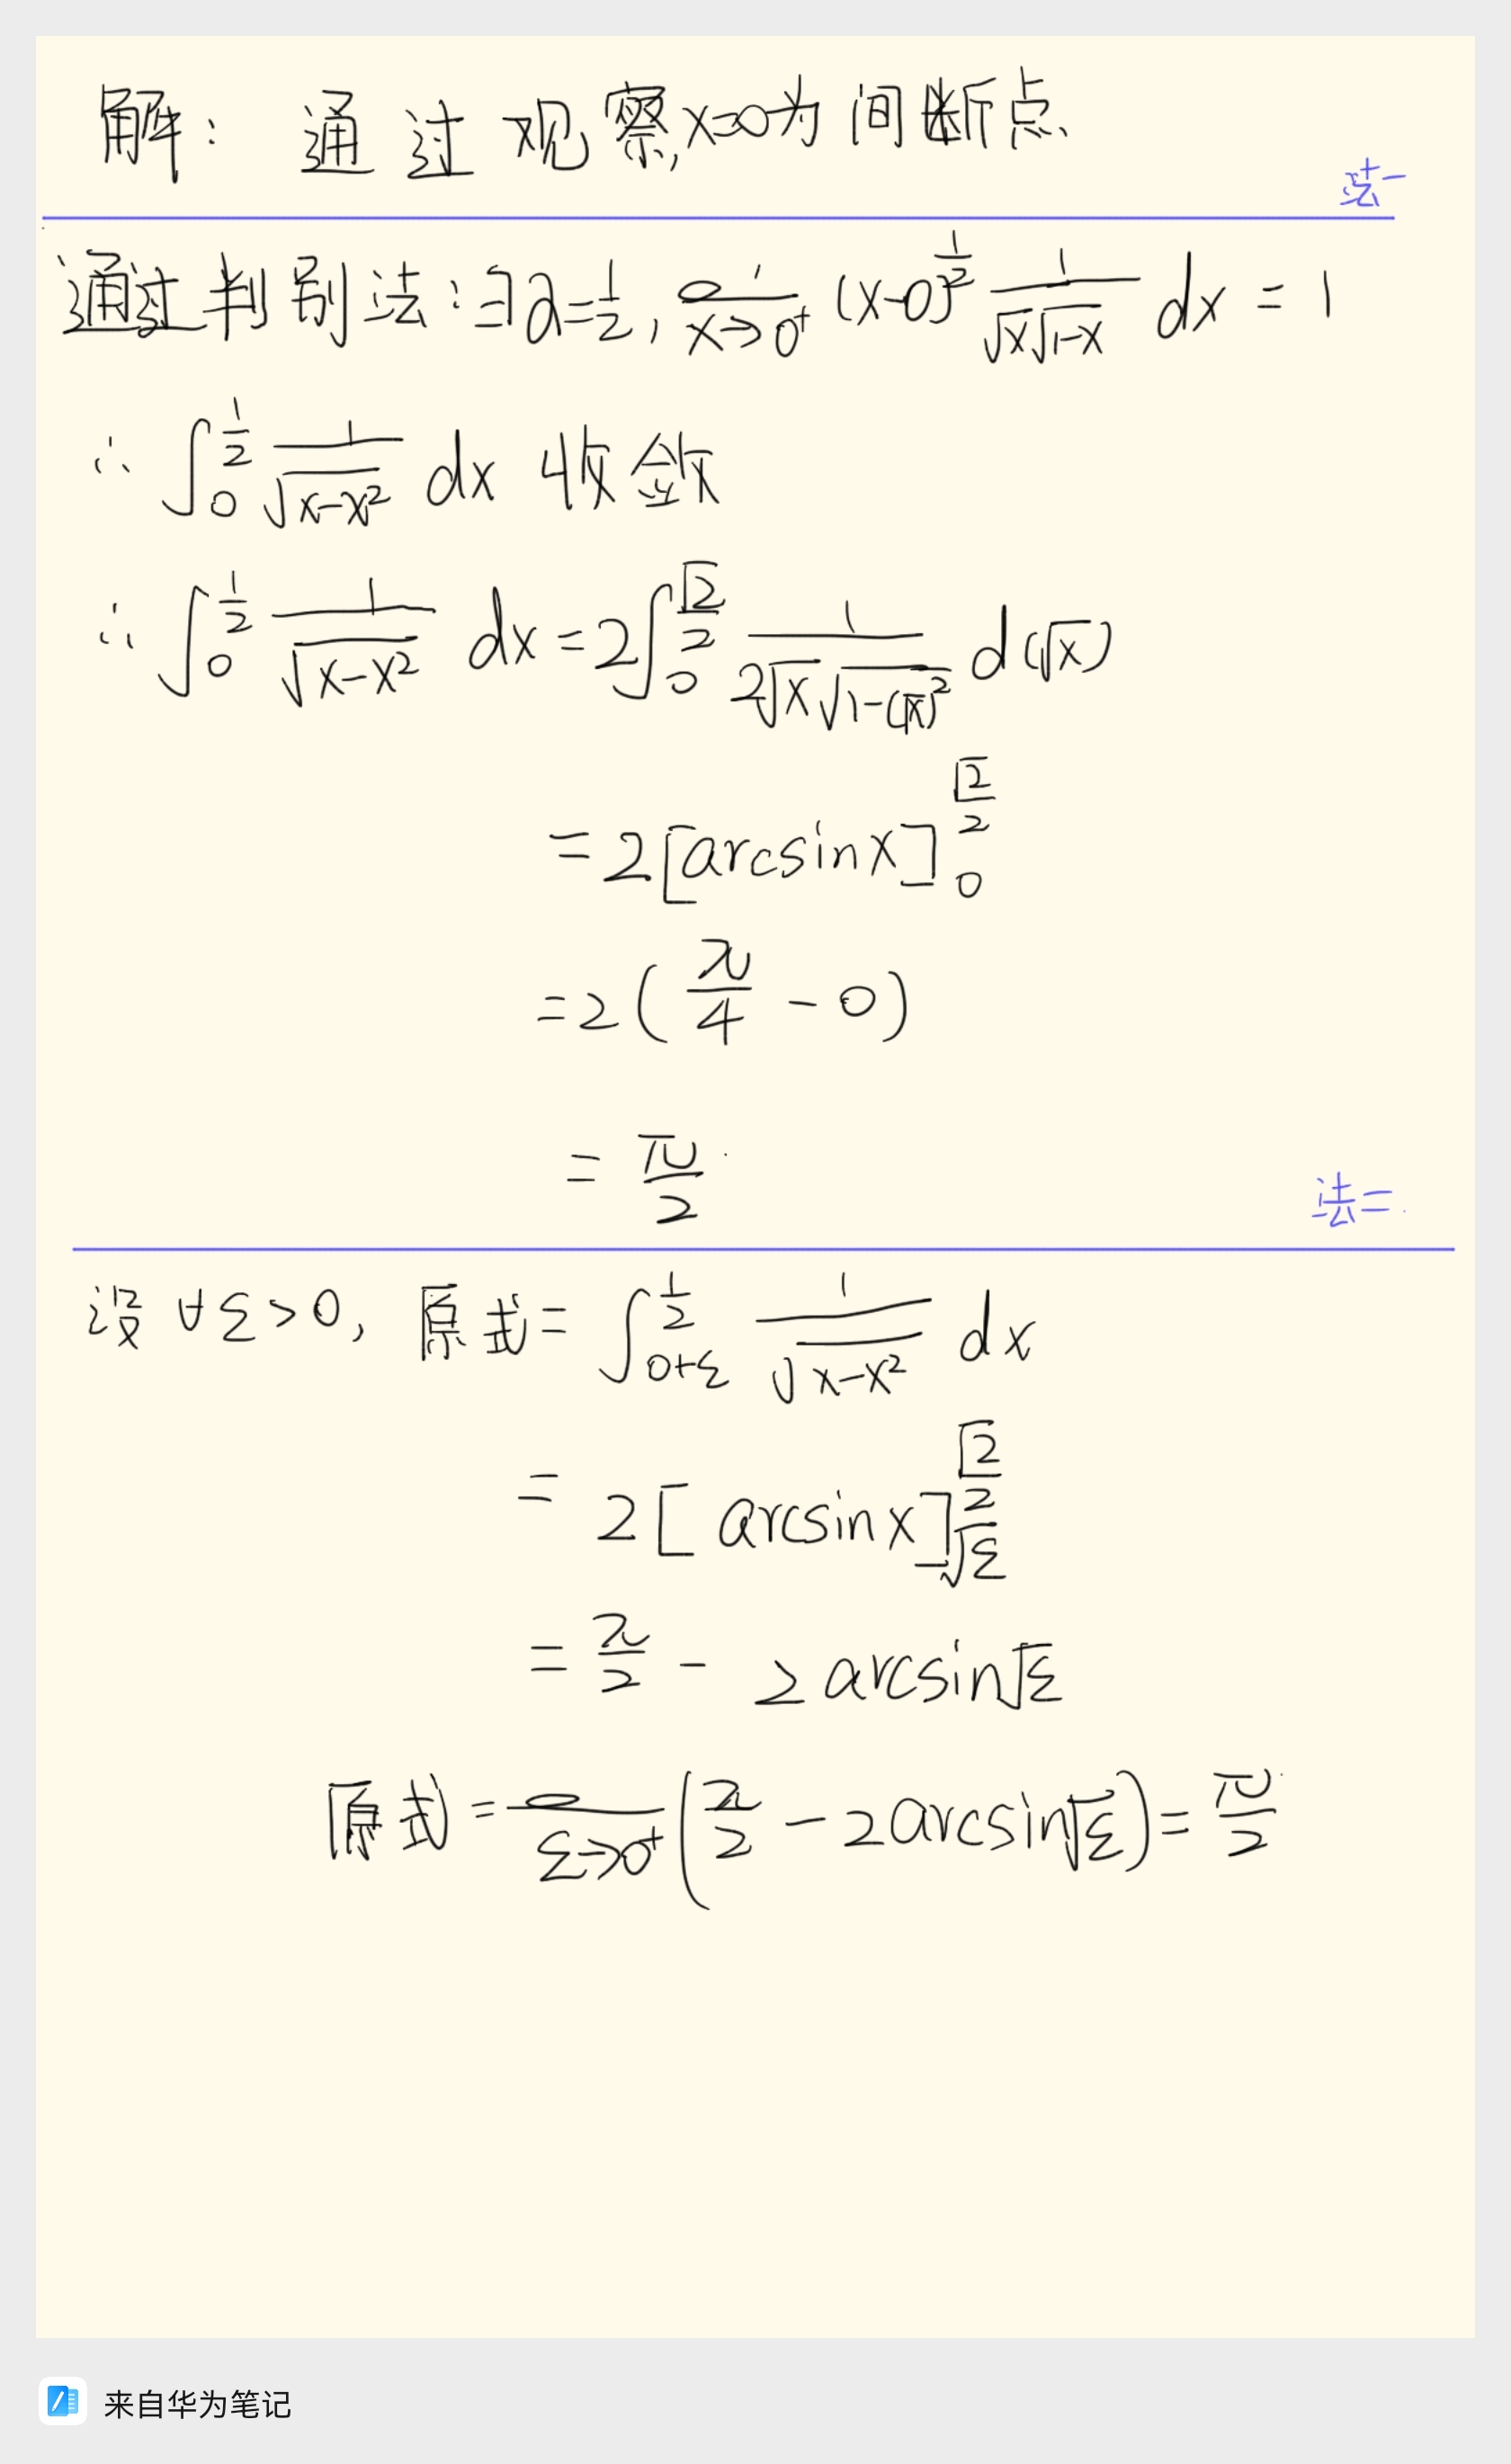 解: 通过观察,x=0为间断点.
法一
通过判别法:∃∂=1/2, lim x→0⁺ (x-0)^(1/2) 1/(√x√(1-x)) dx = 1
∴ ∫₀^(1/2) 1/√(x-x²) dx 收敛
∴ ∫₀^(1/2) 1/√(x-x²) dx = 2∫₀^(√2/2) 1/(2√x√(1-(√x)²)) d(√x)
= 2[arcsinx]₀^(√2/2)
= 2(π/4 - 0)
= π/2
法二.
设∀ε>0, 原式 = ∫_(0+ε)^(1/2) 1/√(x-x²) dx
= 2[arcsinx]_(√ε)^(√2/2)
= π/2 - 2arcsin√ε
原式 = lim ε→0⁺ (π/2 - 2arcsin√ε) = π/2
来自华为笔记